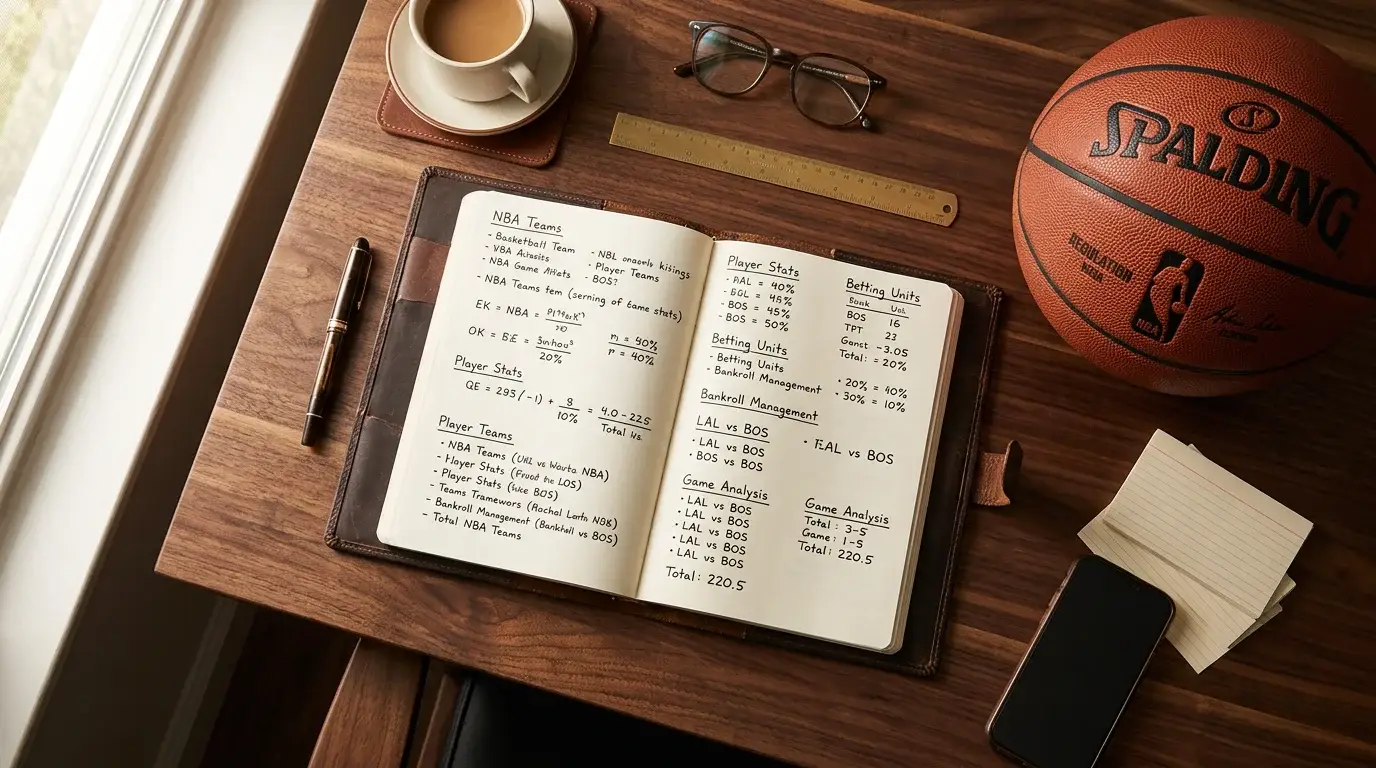 NBA Teams
- Basketball Team
- NBA
- NBA Game
- NBL
- Player Teams
BOS?
- NBA Teams tem (serning of Game stats)
EK = NBA =
OK = =
20%
n = 90%
r = 40%
Player Stats
QE = 293 (-1) + 8 / 10% = 4.0-225 / Total
Player Teams
- NBA Teams ( vs NBA)
- Player Stats ( LOS)
- Player Stats ( BOS)
- Teams ( NBK)
- Bankroll Management ( vs BOS)
- Total NBA Teams
Player Stats
= 40%
= 45%
- BOS = 45%
- BOS = 50%
Betting Units
- Betting Units
- Bankroll Management
Betting Units
BOS 16
TPT 23
-3.05
Total: = 20%
• 20% = 40%
• 30% = 10%
Bankroll Management
LAL vs BOS
• LAL vs BOS
• BOS vs BOS
• vs BOS
Game Analysis
• LAL vs BOS
• LAL vs BOS
• LAL vs BOS
• LAL vs BOS
• LAL vs BOS
Total: 220.5
Game Analysis
Total: 3-5
Game: 1-5
Total: 220.5
S
SPALDING
REGULATION
NBA